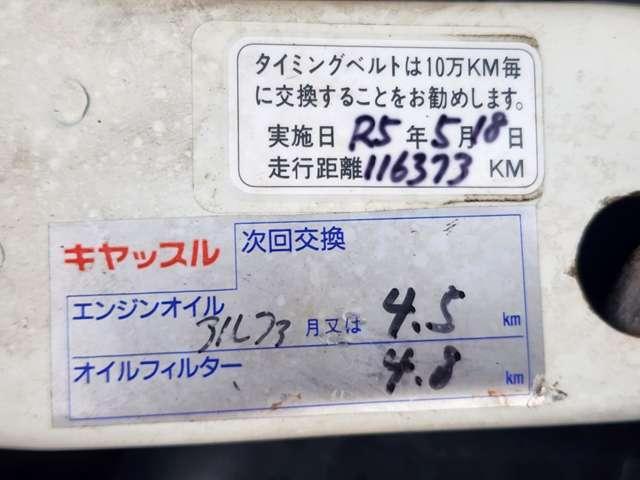 タイミングベルトは10万KM毎
に交換することをお勧めします。
実施日 R5年5月18日
走行距離116373 KM
キヤッスル
次回交換
エンジンオイル
月又は 4.5 km
オイルフィルター
4.8 km